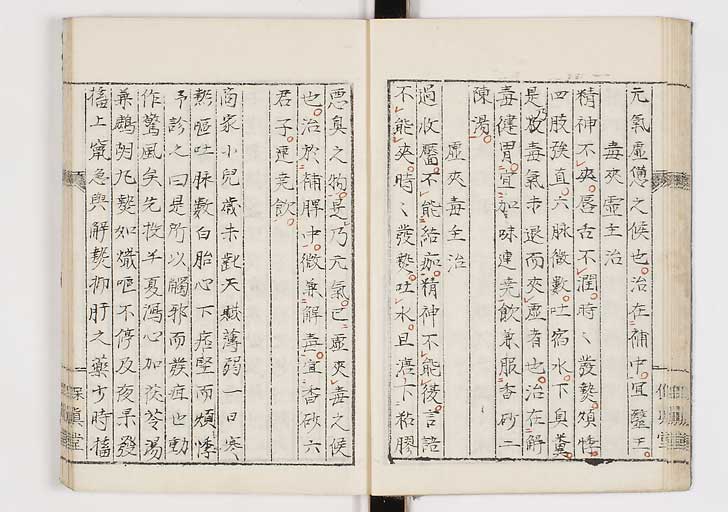 元氣虛憊之候也治在補中宜醫王
毒夾虛主治
精神不爽唇舌不潤時〻發熱煩悸
四肢强直六脉微數吐宿水下臭糞
是乃毒氣未退而夾虛者也治在解
毒健胃宜加味連堯飲兼服香砂二
陳湯
虛夾毒主治
過收靨不能結痂精神不能復言語
不能爽時〻發熱吐水且瘡下粘膠
悪臭之物是乃元氣已虛夾毒之候
也治於補脾中微兼解毒宜香砂六
君子連堯飲
商家小兒歲未齔天賦薄弱一日寒
熱嘔吐脉數白胎心下痞堅而煩悸
予診之曰是所以觸邪而發疳也動
作驚風矣先投半夏瀉心加茯苓湯
兼鷓胡丸熱如熾嘔不停及夜果發
搐上竄急與解熱抑肝之藥少時搐
保真堂